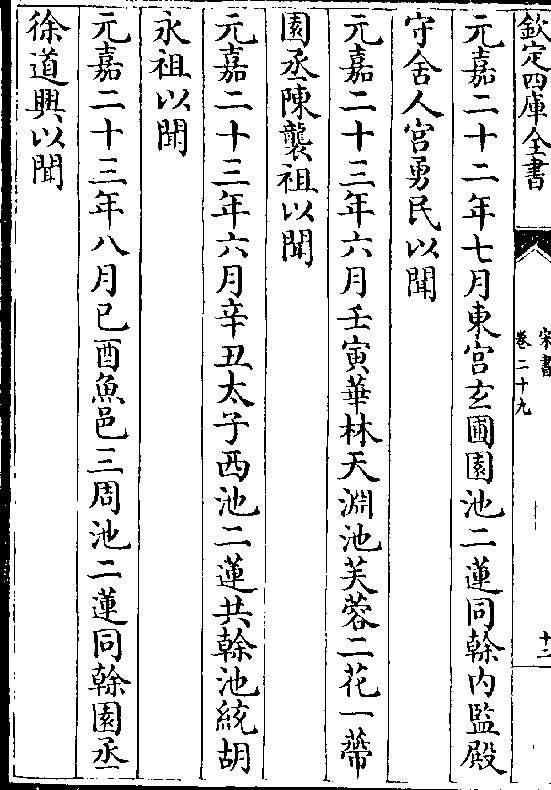 欽定四庫全書
宋書
卷二十九
十二
元嘉二十二年七月東宮玄圃園池二蓮同榦内監殿
守舍人宮勇民以聞
元嘉二十三年六月壬寅華林天淵池芙蓉二花一蔕
園丞陳襲祖以聞
元嘉二十三年六月辛丑太子西池二蓮共榦池統胡
永祖以聞
元嘉二十三年八月己酉魚邑三周池二蓮同榦園丞
徐道興以聞